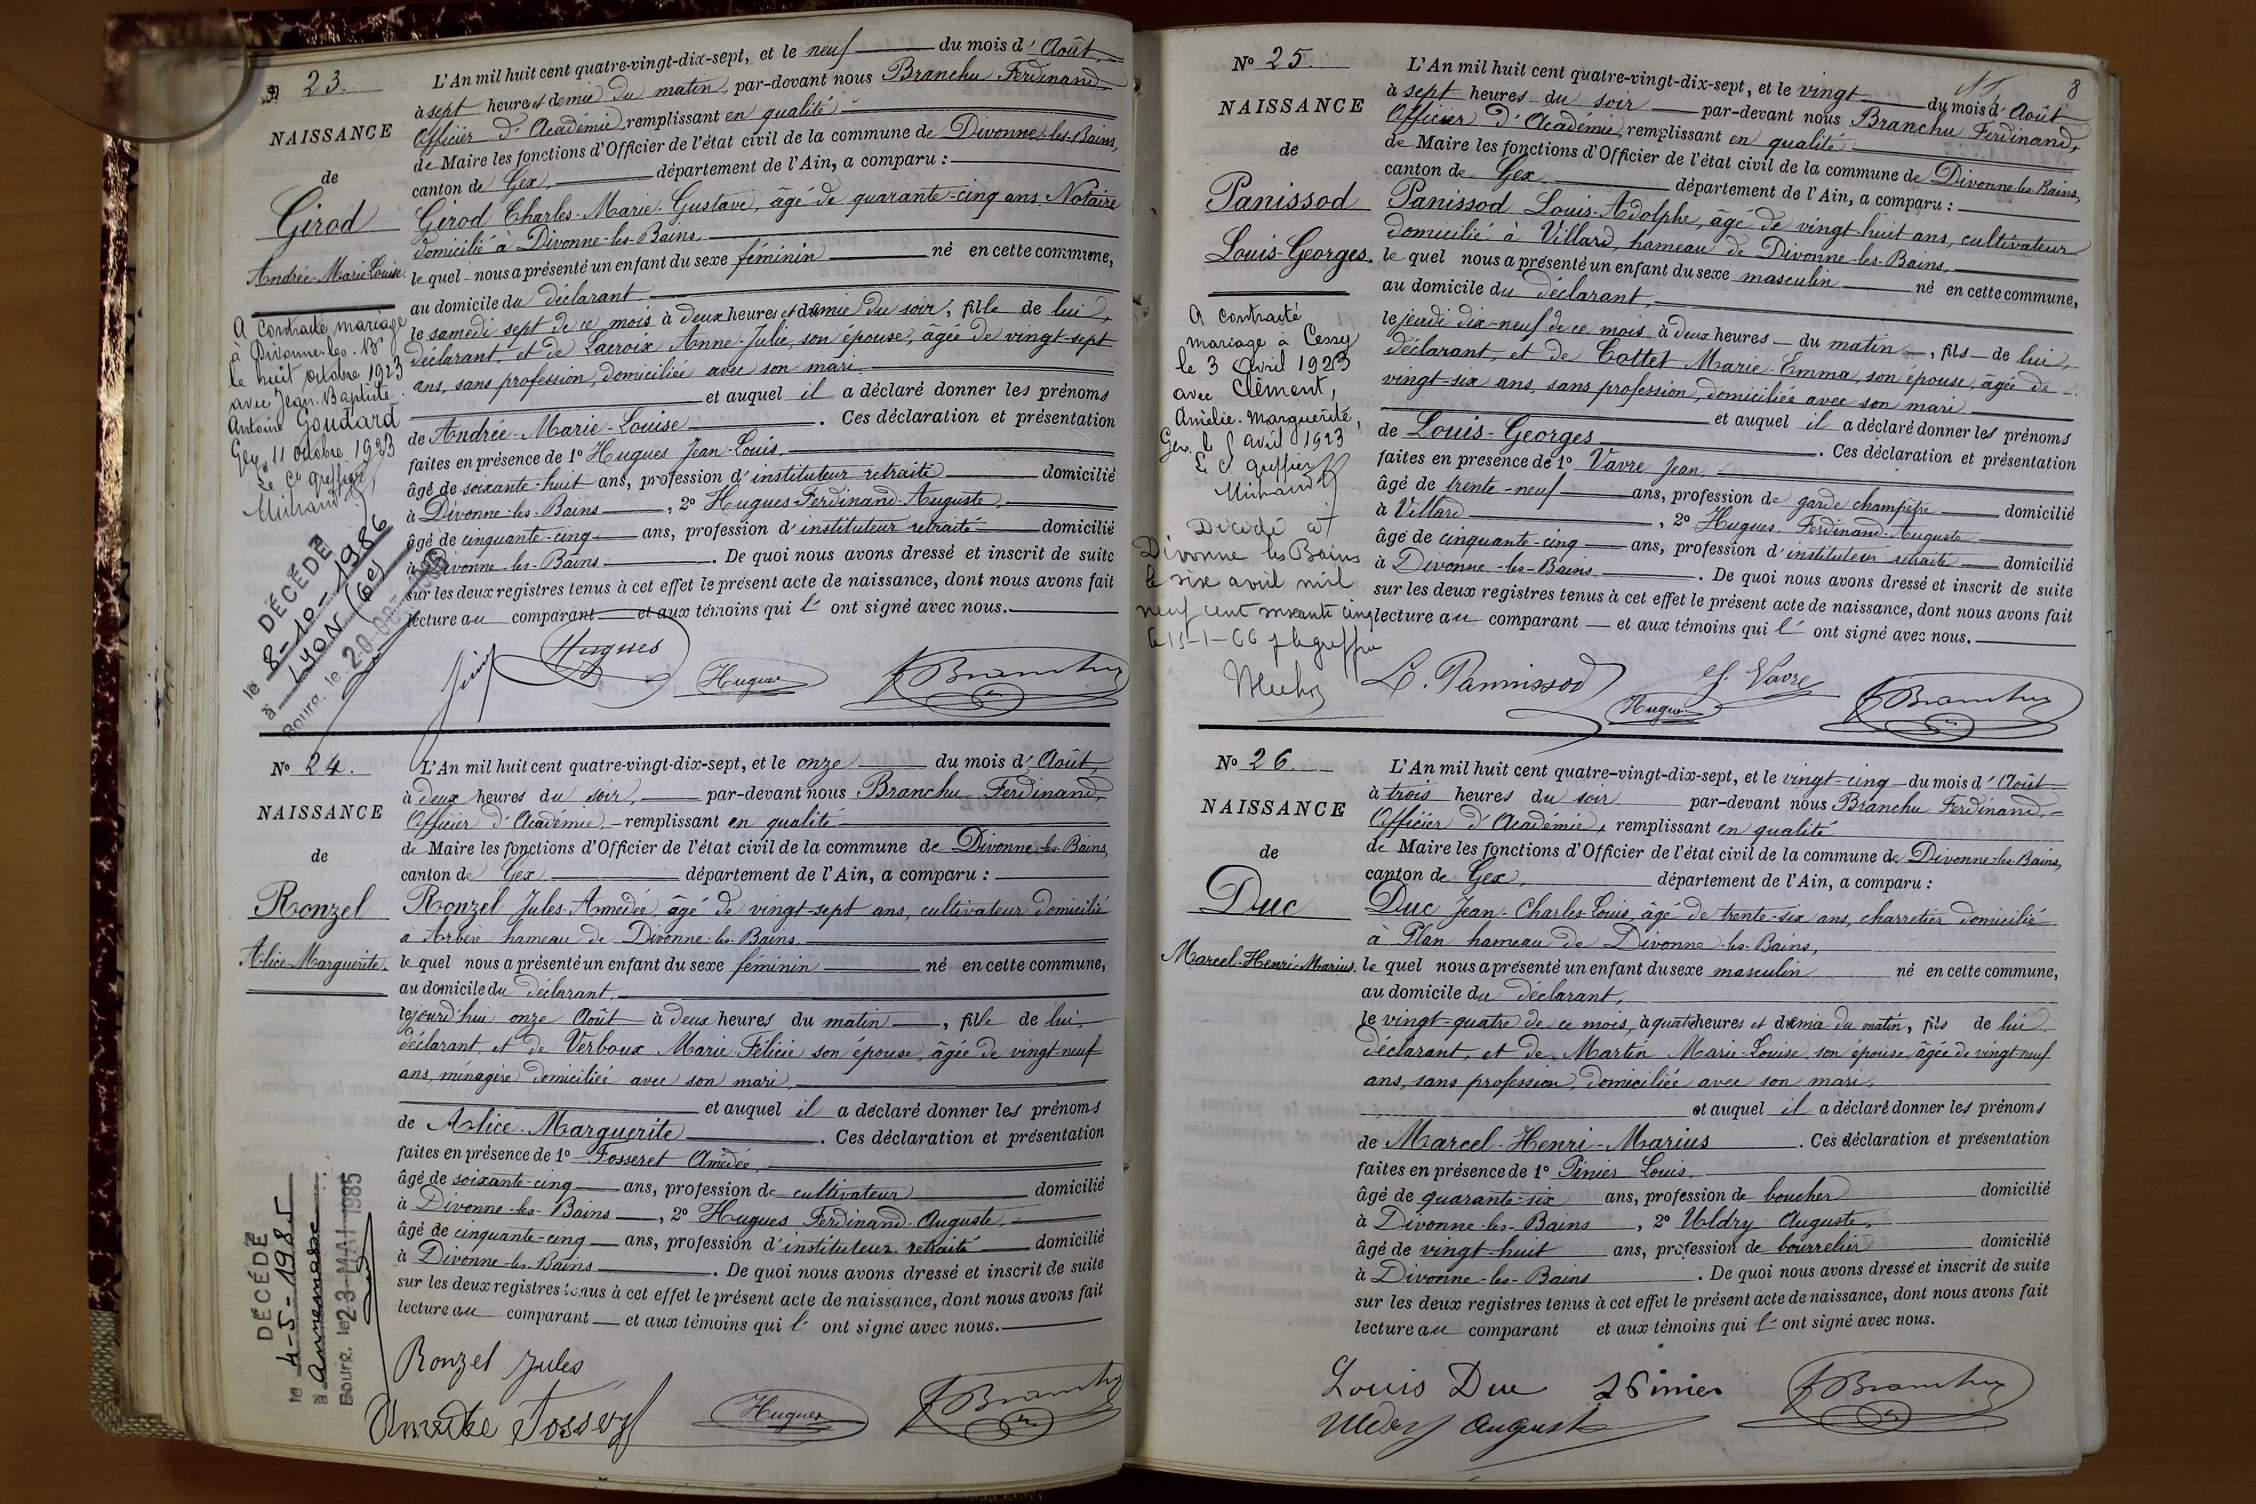 23.
NAISSANCE
de
Girod
Andrée-Marie-Louise.
A contracté mariage
à Divonne-les-B
le huit octobre 1923
avec Jean-Baptiste
Antoine Goudard
Gex 11 octobre 1923
Le Cs greffier
DÉCÉDÉ
le 8-10-1986
à LYON (6e)
Bourg, le 20
L'An mil huit cent quatre-vingt-dix-sept, et le neuf du mois d'Août,
à sept heures et demie du matin, par-devant nous Branchu Ferdinand,
Officier d'Académie, remplissant en qualité
de Maire les fonctions d'Officier de l'état civil de la commune de Divonne-les-Bains,
canton de Gex, département de l'Ain, a comparu :
Girod Charles-Marie-Gustave, âgé de quarante-cinq ans, Notaire
domicilié à Divonne-les-Bains,
le quel nous a présenté un enfant du sexe féminin né en cette commune,
au domicile du déclarant,
le samedi sept de ce mois à deux heures et demie du soir, fille de lui,
déclarant, et de Lacroix Anne-Julie, son épouse, âgée de vingt-sept
ans, sans profession, domiciliée avec son mari,
et auquel il a déclaré donner les prénoms
de Andrée-Marie-Louise. Ces déclaration et présentation
faites en présence de 1° Hugues Jean-Louis,
âgé de soixante-huit ans, profession d'instituteur retraité domicilié
à Divonne-les-Bains, 2° Hugues-Ferdinand-Auguste,
âgé de cinquante-cinq ans, profession d'instituteur retraité domicilié
à Divonne-les-Bains. De quoi nous avons dressé et inscrit de suite
sur les deux registres tenus à cet effet le présent acte de naissance, dont nous avons fait
lecture au comparant et aux témoins qui l' ont signé avec nous.
Hugues
Hugues
Branchu
N° 24.
NAISSANCE
de
Ronzel
Alice-Marguerite.
DÉCÉDÉ
le 4-5-1985
à Annemasse
Bourg, le 23 MAI 1985
L'An mil huit cent quatre-vingt-dix-sept, et le onze du mois d'Août,
à deux heures du soir, par-devant nous Branchu Ferdinand,
Officier d'Académie, remplissant en qualité
de Maire les fonctions d'Officier de l'état civil de la commune de Divonne-les-Bains,
canton de Gex, département de l'Ain, a comparu :
Ronzel Jules-Amédée, âgé de vingt-sept ans, cultivateur domicilié
à Arbère hameau de Divonne-les-Bains,
le quel nous a présenté un enfant du sexe féminin né en cette commune,
au domicile du déclarant,
lejourd'hui onze Août à deux heures du matin, fille de lui,
déclarant, et de Verboux Marie-Félicie son épouse, âgée de vingt-neuf
ans, ménagère domiciliée avec son mari,
et auquel il a déclaré donner les prénoms
de Alice-Marguerite. Ces déclaration et présentation
faites en présence de 1° Fosseret Amédée,
âgé de soixante-cinq ans, profession de cultivateur domicilié
à Divonne-les-Bains, 2° Hugues Ferdinand-Auguste,
âgé de cinquante-cinq ans, profession d'instituteur retraité domicilié
à Divonne-les-Bains. De quoi nous avons dressé et inscrit de suite
sur les deux registres tenus à cet effet le présent acte de naissance, dont nous avons fait
lecture au comparant et aux témoins qui l' ont signé avec nous.
Ronzel Jules
Hugues
Branchu
8
N° 25.
NAISSANCE
de
Panissod
Louis-Georges.
A contracté
mariage à Cessy
le 3 Avril 1923
avec Clément,
Amélie-Marguerite,
Gex, le 5 avril 1923
Le Cs greffier
Décédé à
Divonne les Bains
le six avril mil
neuf cent soixante cinq
le 13-1-66 le greffier
L'An mil huit cent quatre-vingt-dix-sept, et le vingt du mois d'Août
à sept heures du soir par-devant nous Branchu Ferdinand,
Officier d'Académie, remplissant en qualité
de Maire les fonctions d'Officier de l'état civil de la commune de Divonne-les-Bains,
canton de Gex département de l'Ain, a comparu :
Panissod Louis-Adolphe, âgé de vingt-huit ans, cultivateur
domicilié à Villard, hameau de Divonne-les-Bains,
le quel nous a présenté un enfant du sexe masculin né en cette commune,
au domicile du déclarant,
le jeudi dix-neuf de ce mois, à deux heures du matin, fils de lui,
déclarant, et de Cottet Marie-Emma, son épouse, âgée de
vingt-six ans, sans profession, domiciliée avec son mari
et auquel il a déclaré donner les prénoms
de Louis-Georges. Ces déclaration et présentation
faites en présence de 1° Vavre Jean,
âgé de trente-neuf ans, profession de garde champêtre domicilié
à Villard, 2° Hugues, Ferdinand-Auguste
âgé de cinquante-cinq ans, profession d'instituteur retraité domicilié
à Divonne-les-Bains. De quoi nous avons dressé et inscrit de suite
sur les deux registres tenus à cet effet le présent acte de naissance, dont nous avons fait
lecture au comparant et aux témoins qui l' ont signé avec nous.
L. Pannissod
J. Vavre
Hugues
Branchu
N° 26
NAISSANCE
de
Duc
Marcel-Henri-Marius.
L'An mil huit cent quatre-vingt-dix-sept, et le vingt-cinq du mois d'Août
à trois heures du soir par-devant nous Branchu Ferdinand,
Officier d'Académie, remplissant en qualité
de Maire les fonctions d'Officier de l'état civil de la commune de Divonne-les-Bains,
canton de Gex, département de l'Ain, a comparu :
Duc Jean-Charles-Louis, âgé de trente-six ans, charretier domicilié
à Plan hameau de Divonne-les-Bains,
le quel nous a présenté un enfant du sexe masculin né en cette commune,
au domicile du déclarant,
le vingt-quatre de ce mois, à quatre heures et demie du matin, fils de lui
déclarant, et de Martin Marie-Louise, son épouse, âgée de vingt-neuf
ans, sans profession, domiciliée avec son mari,
et auquel il a déclaré donner les prénoms
de Marcel-Henri-Marius. Ces déclaration et présentation
faites en présence de 1° Pinier Louis,
âgé de quarante-six ans, profession de boucher domicilié
à Divonne-les-Bains, 2° Uldry Auguste,
âgé de vingt-huit ans, profession de bourrelier domicilié
à Divonne-les-Bains. De quoi nous avons dressé et inscrit de suite
sur les deux registres tenus à cet effet le présent acte de naissance, dont nous avons fait
lecture au comparant et aux témoins qui l' ont signé avec nous.
Louis Duc
L Pinier
Uldry Auguste
Branchu